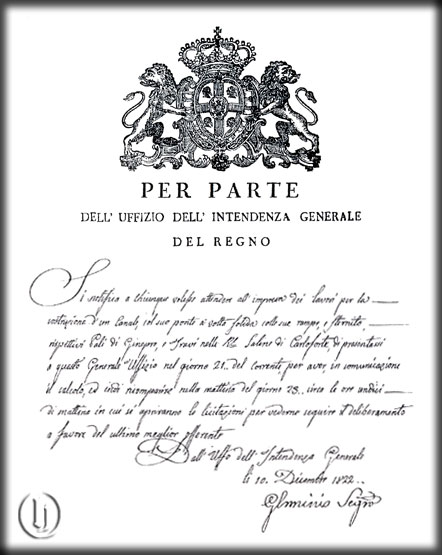 PER PARTE
DELL' UFFIZIO DELL' INTENDENZA GENERALE
DEL REGNO
Si notifica a chiunque volesse attendere all' impresa dei lavori per la
costruzione d'un Canale, col suo ponte a volta solida colle sue rampe, e sternito,
rispettivi Pali di Ginepro, e Travi nelle RR. Saline di Carloforte, di presentarsi
a questo Generale Uffizio nel giorno 21. del corrente, per aver in comunicazione
il calcolo, ed indi ricomparire nella mattina del giorno 23. circa le ore undici
di mattina in cui si apriranno le licitazioni per vederne seguire il deliberamento
a favore del ultimo miglior offerente
Dall' Uffo dell' Intendenza Generale
li 10. Dicembre 1822.